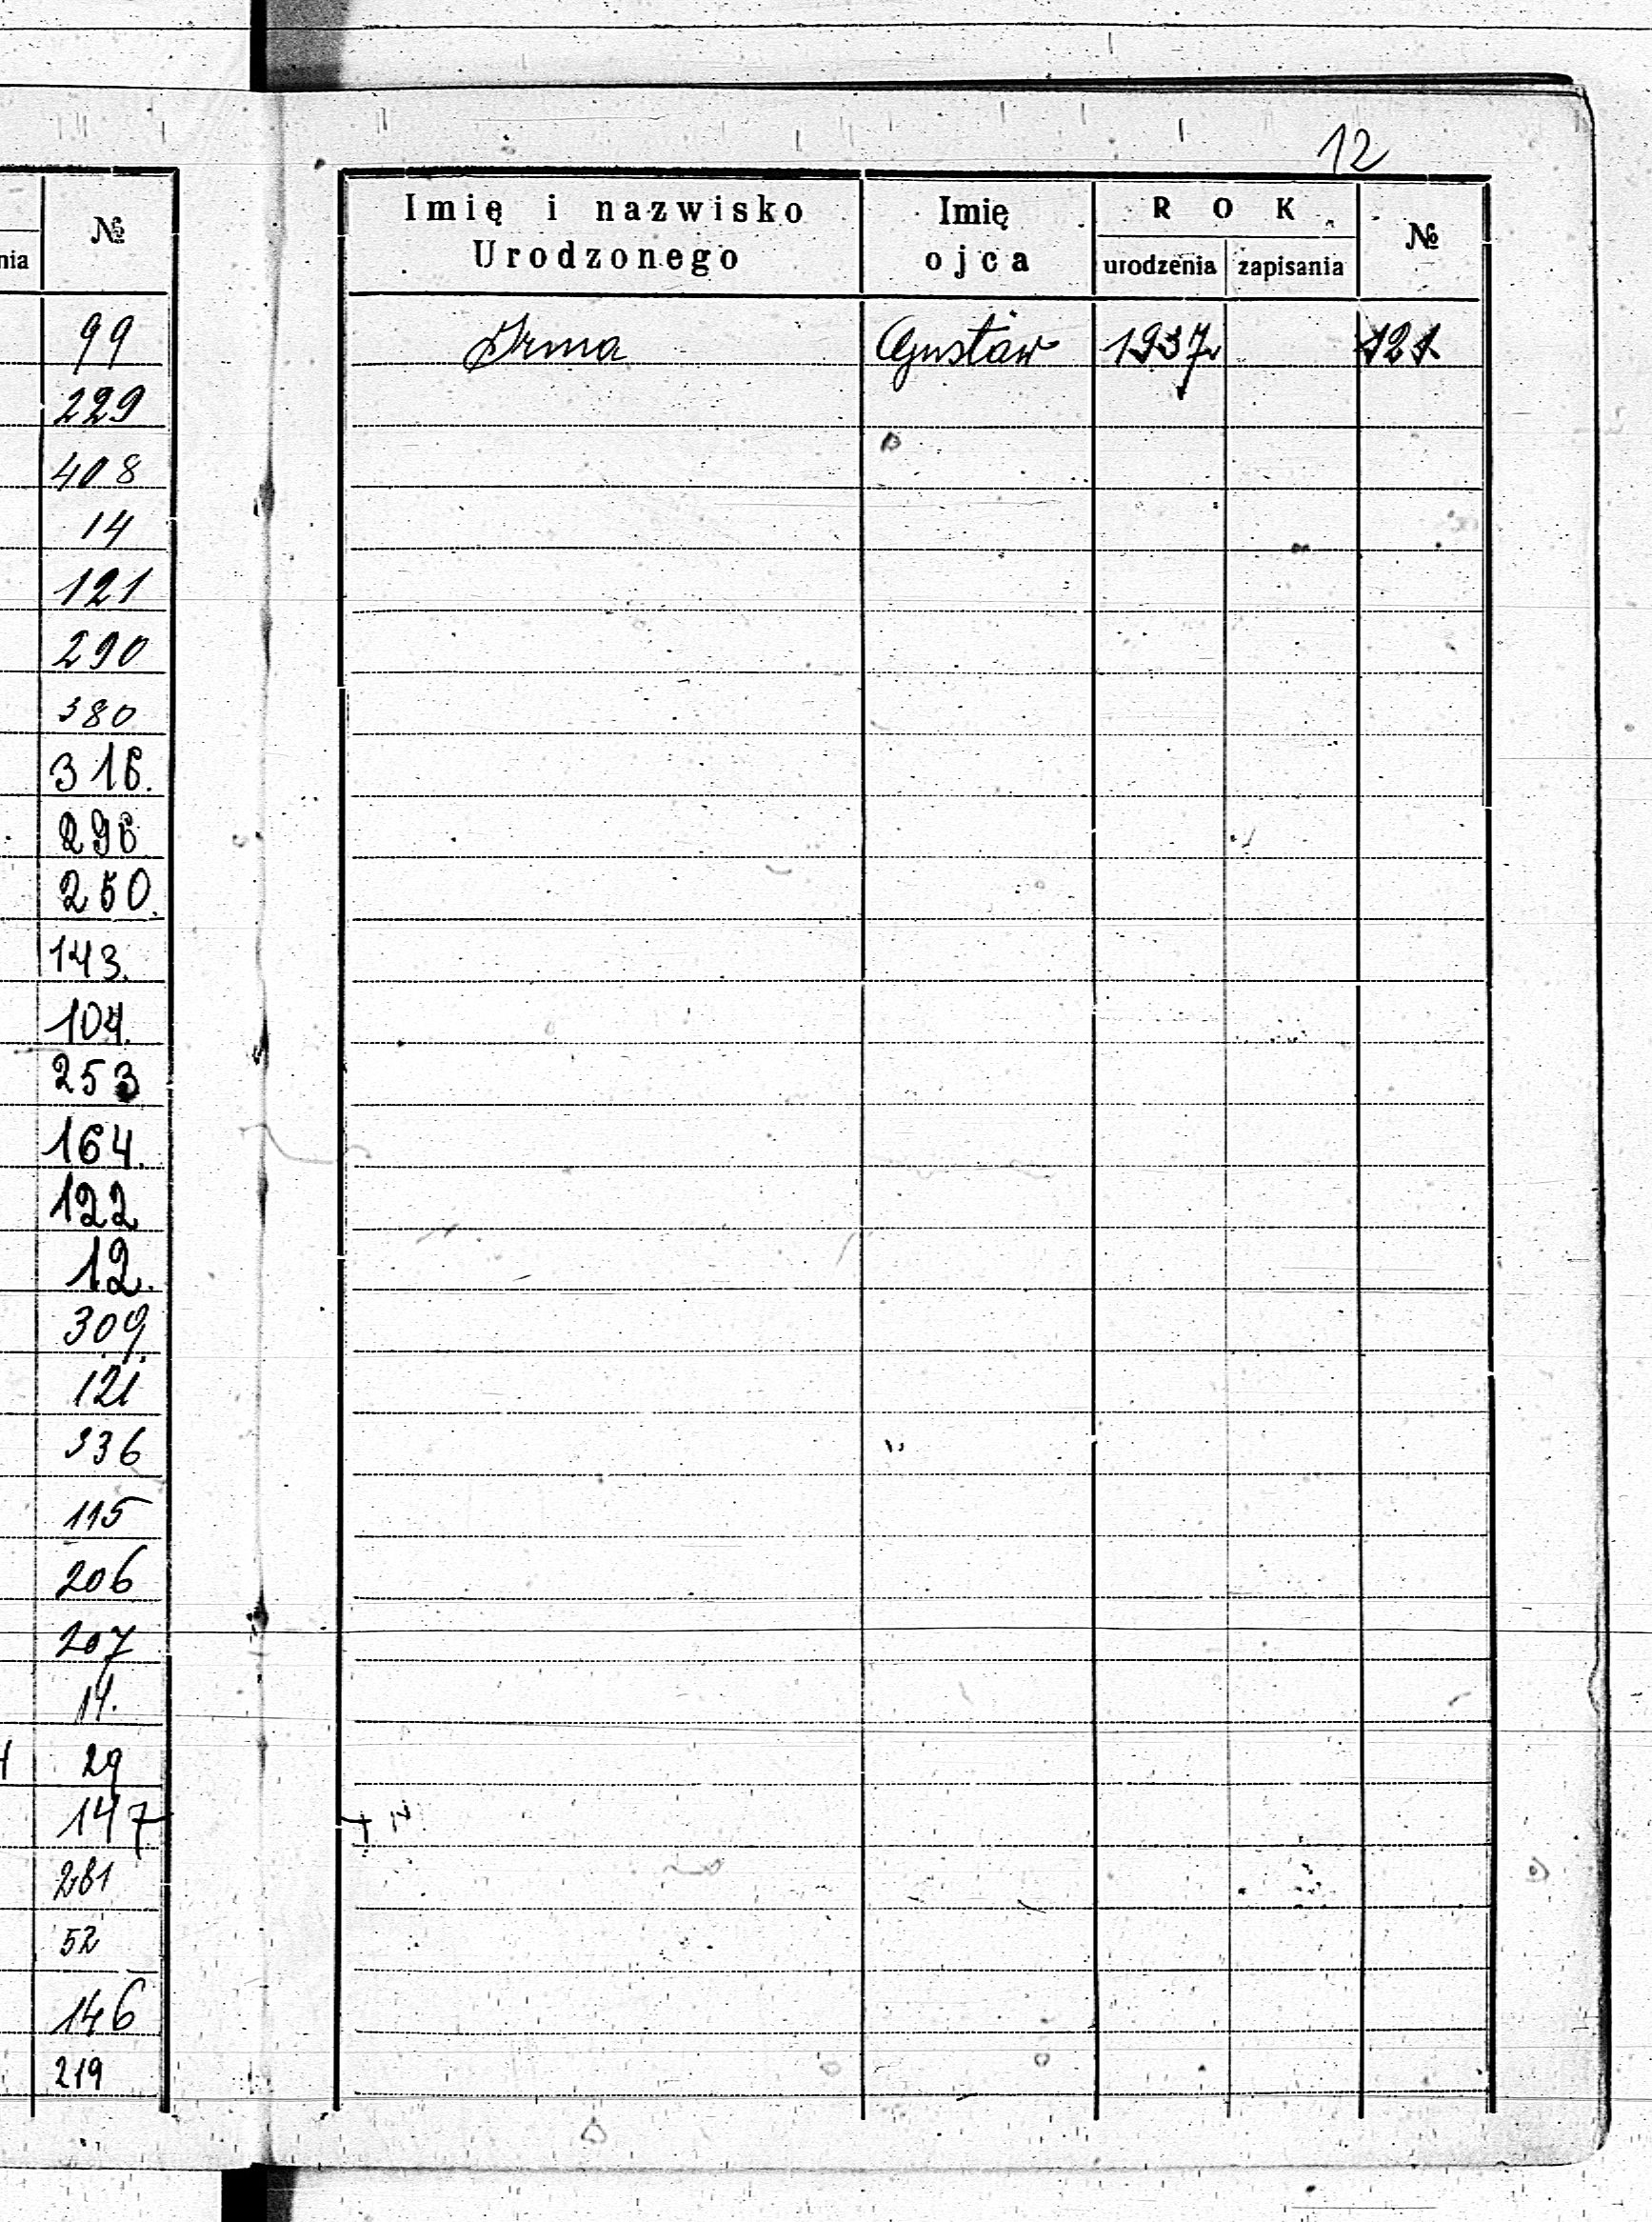 №
nia
99
229
408
14
121
290
380
316.
296
250.
143.
104.
253
164.
122
12.
309
121
336
115
206
207
14.
29
147
281
52
146
219
12
Imię i nazwisko
Urodzonego
Imię
ojca
ROK
urodzenia
zapisania
№
Irma
Gustaw
1937
121